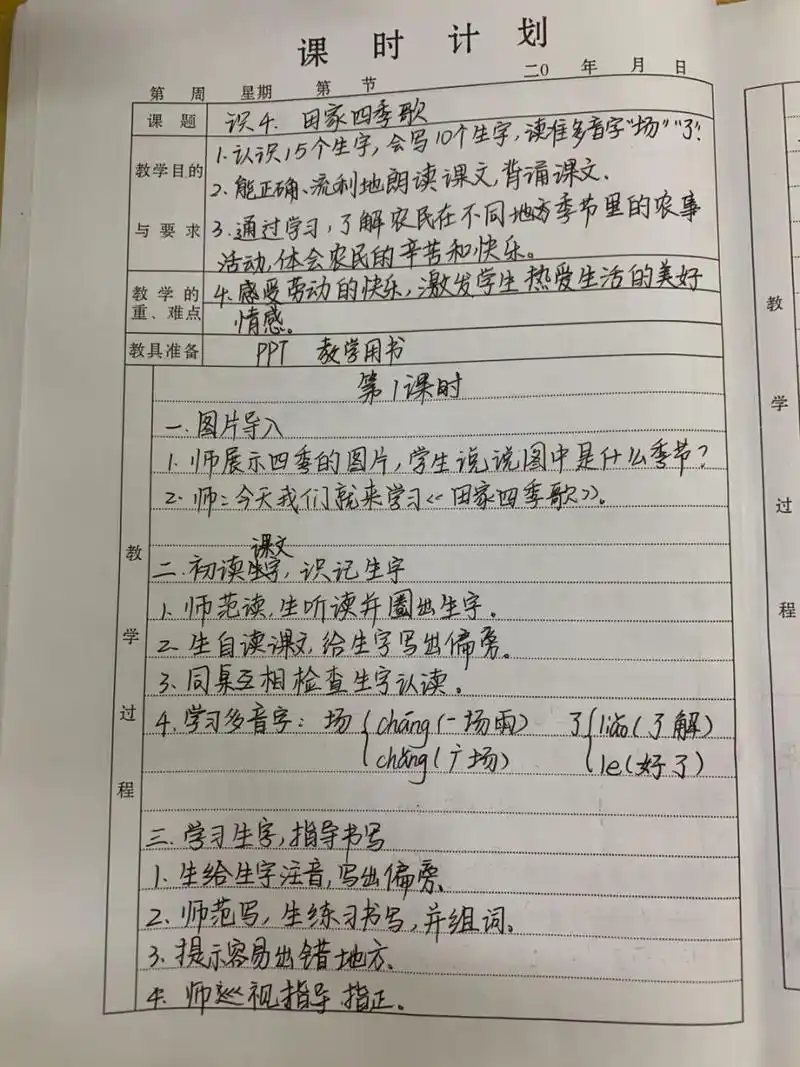 课 时 计 划
第 周 星期 第 节 二0 年 月 日
课 题 识4. 田家四季歌
教学目的与要求
1.认识15个生字,会写10个生字,读准多音字"场""了".
2.能正确、流利地朗读课文,背诵课文.
3.通过学习,了解农民在不同地方季节里的农事
活动,体会农民的辛苦和快乐。
教学的重、难点
4.感受劳动的快乐,激发学生热爱生活的美好
情感。
教具准备 PPT 教学用书
教学过程
第1课时
一.图片导入
1.师展示四季的图片,学生说说图中是什么季节?
2.师:今天我们就来学习《田家四季歌》。
课文
二.初读生字,识记生字
1.师范读,生听读并圈出生字.
2.生自读课文,给生字写出偏旁。
3.同桌互相检查生字认读.
4.学习多音字: 场{cháng(一场雨) 了{liǎo(了解)
chǎng(广场) le(好了)
三.学习生字,指导书写
1.生给生字注音,写出偏旁、
2.师范写,生练习书写,并组词、
3.提示容易出错地方、
4.师巡视指导、指正.
教
学
过
程